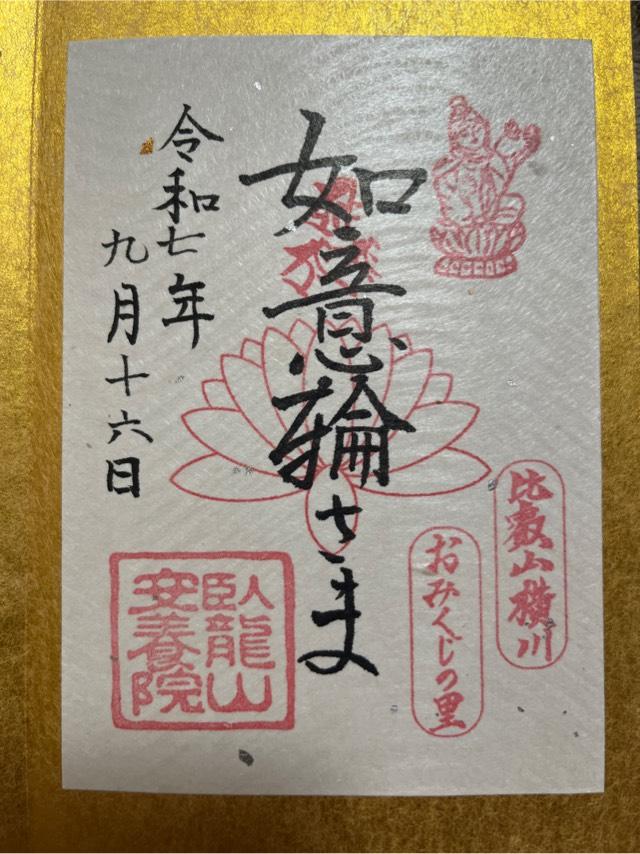 比叡山横川
おみくじの里
如意輪さま
令和七年
九月十六日
臥龍山
安養院